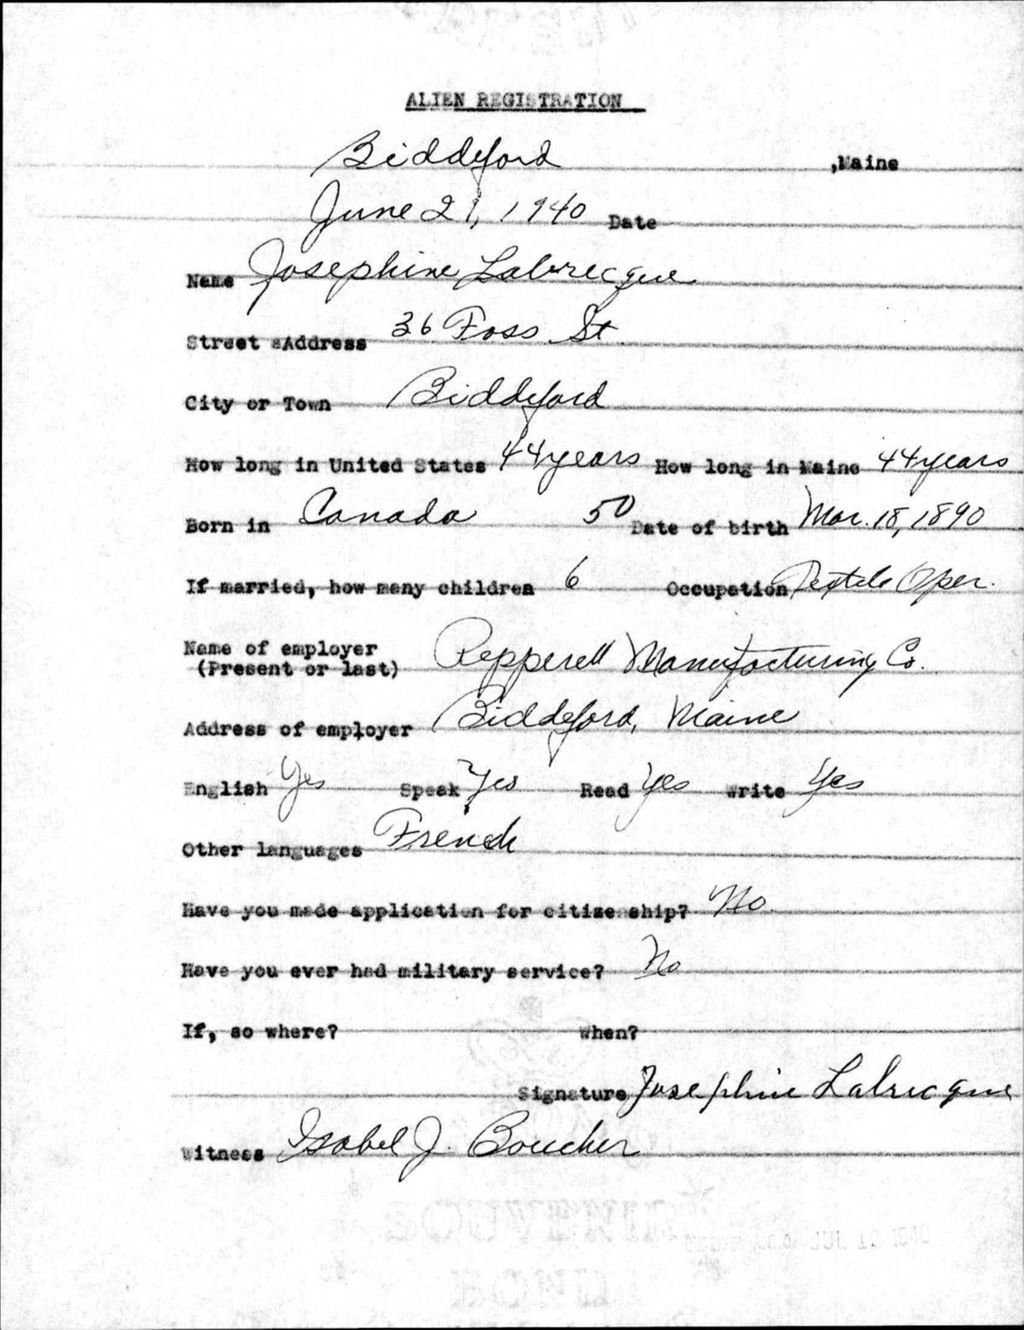 ALIEN REGISTRATION
Biddeford ,Maine
June 21, 1940 Date
Name Josephine Labrecque
Street Address 36 Foss St.
City or Town Biddeford
How long in United States 44 years How long in Maine 44 years
Born in Canada 50 Date of birth Mar. 18, 1890
If married, how many children 6 Occupation Textile Oper.
Name of employer
(Present or last) Pepperell Manufacturing Co.
Address of employer Biddeford, Maine
English Yes Speak Yes Read Yes Write Yes
Other languages French
Have you made application for citizenship? No
Have you ever had military service? No
If, so where? When?
Signature Josephine Labrecque
Witness Isabel J. Boucher